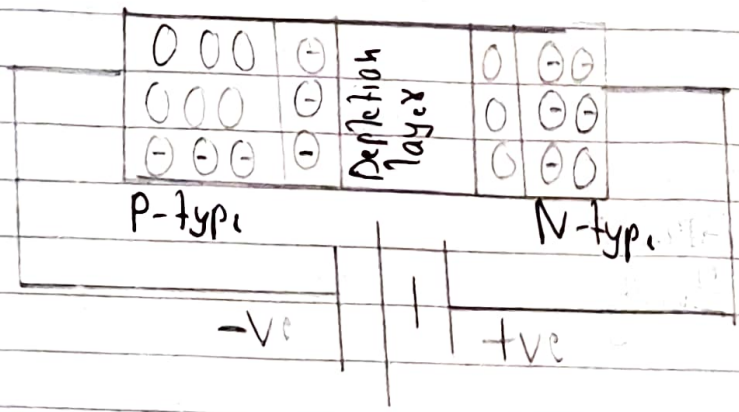 Depletion
layer
P-type
N-type
-ve
+ve